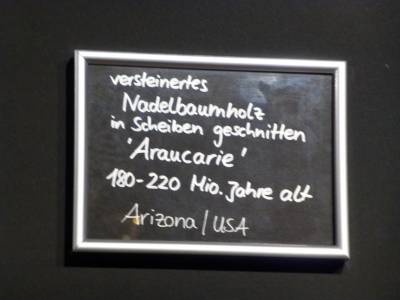 versteinertes
Nadelbaumholz
in Scheiben geschnitten
'Araucarie'
180-220 Mio. Jahre alt
Arizona/USA